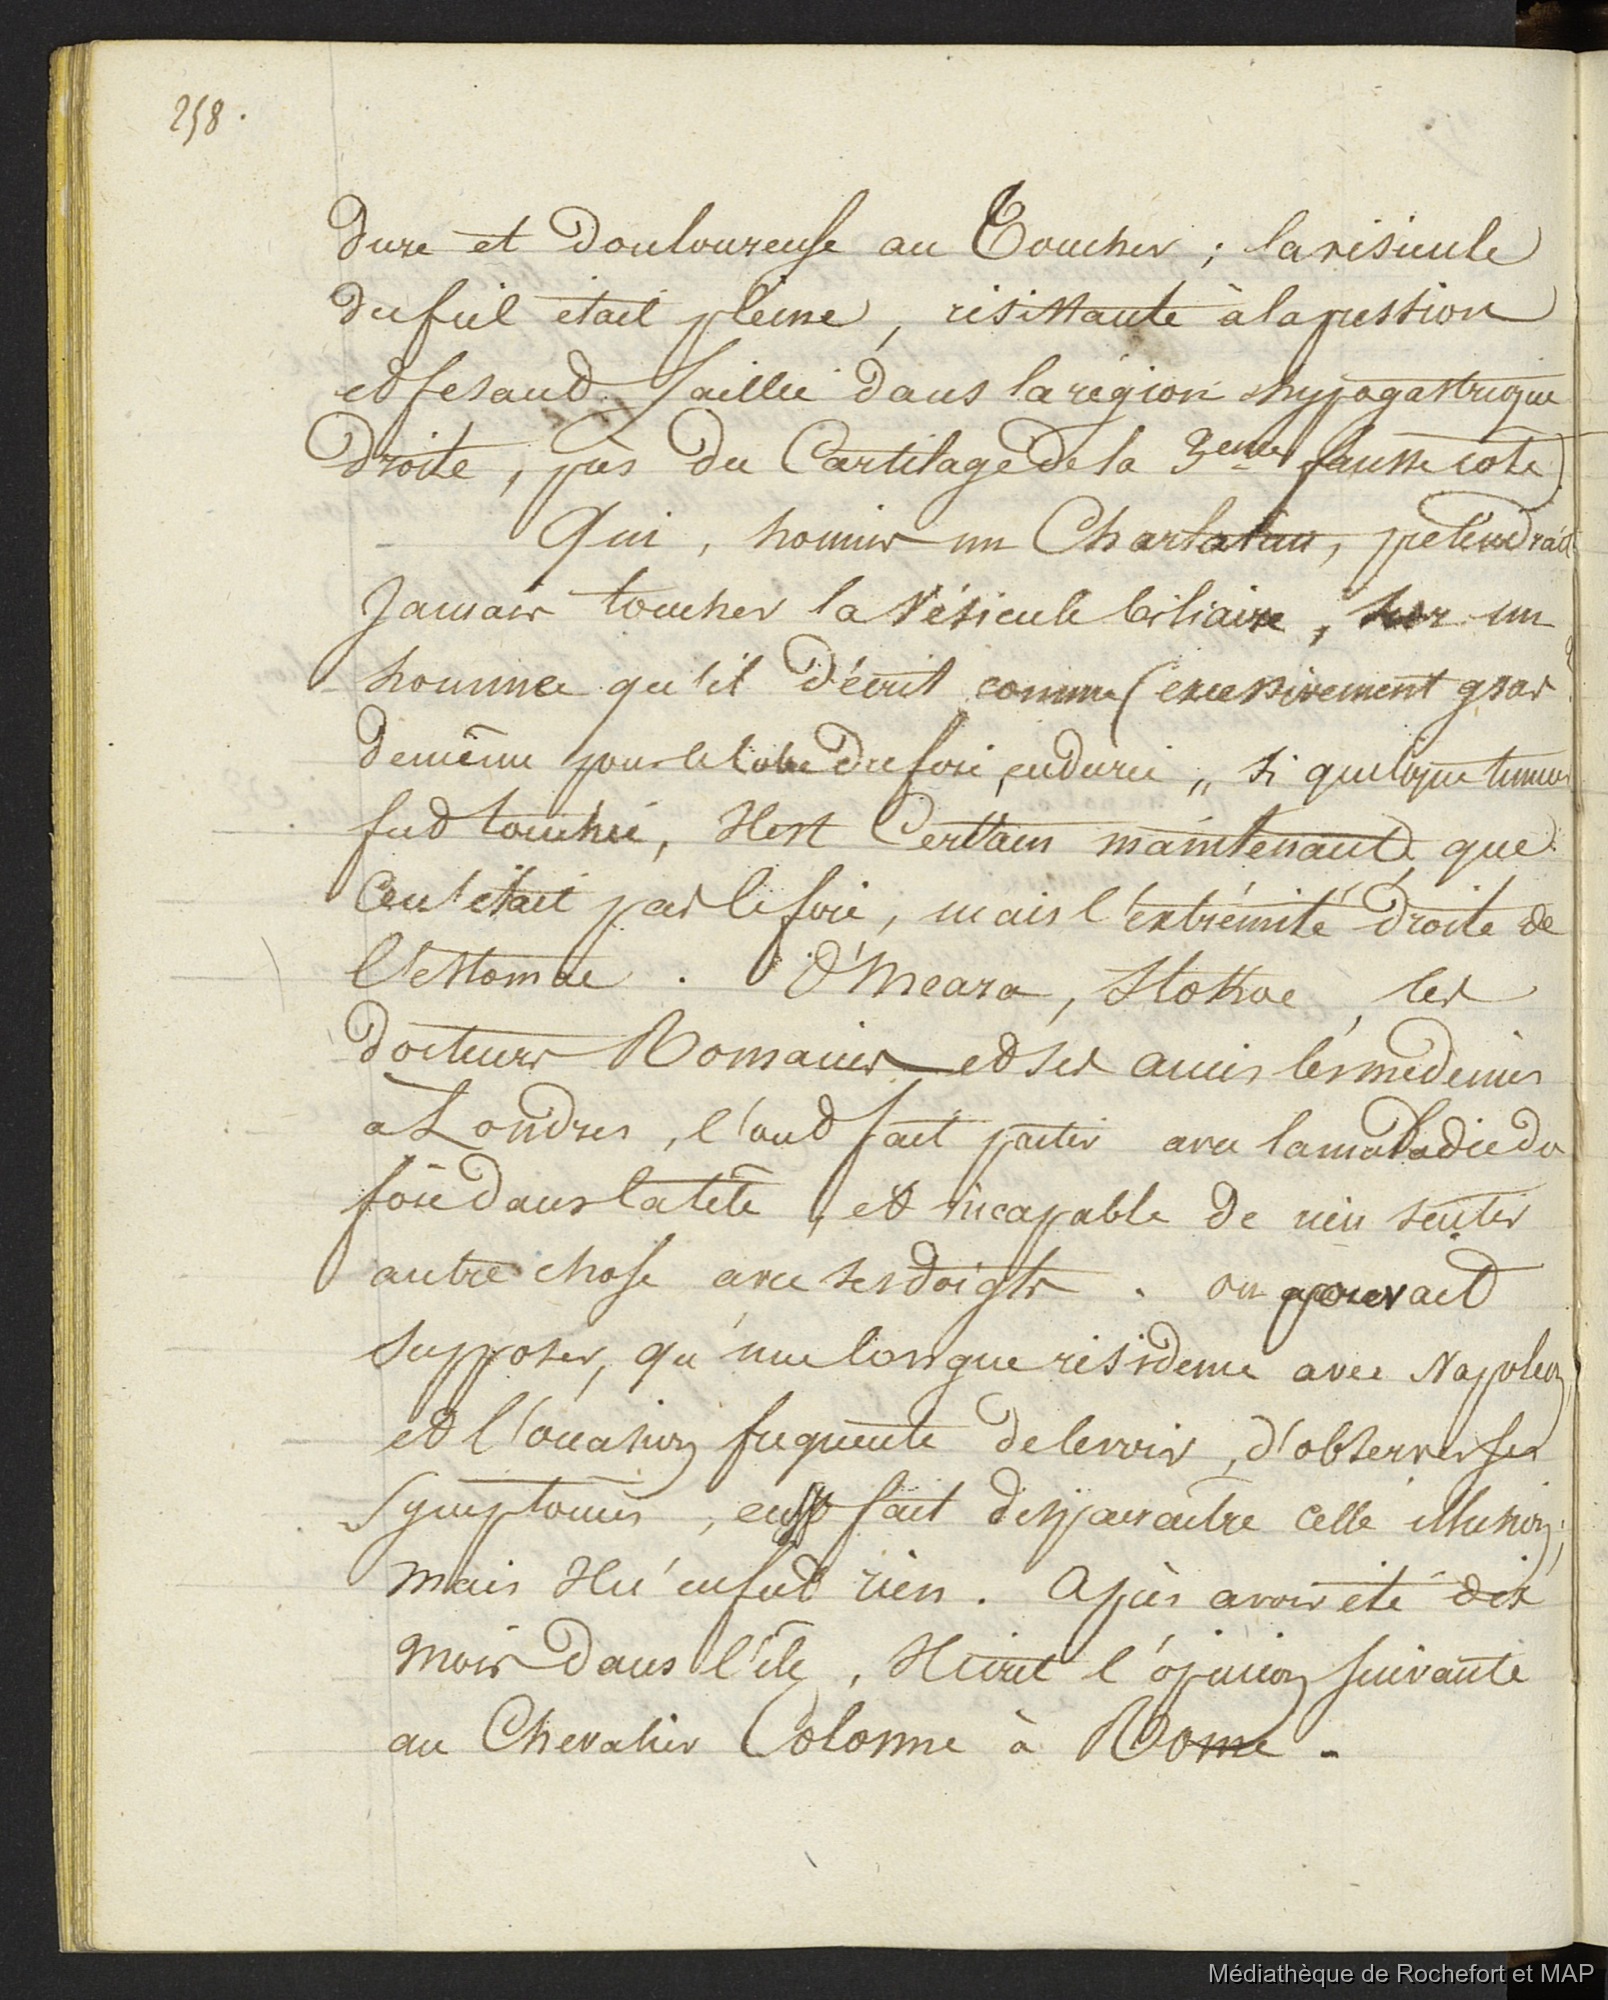 258.
Dure et Douloureuse au Toucher ; la vésicule
du fiel était pleine, résistante à la pression
et fesant Saillie dans la région hypogastrique
Droite, près du Cartilage de la 3eme fausse cote
Qui, hormis un Charlatan, prétendrait
Jamais toucher la Vésicule biliaire, sur un
homme qu'il décrit comme (excessivement gras
de même pour le lobe du foie, endurci „ si quelque tumeur
fut touchée, Il est Certain maintenant, que
Ce n'était pas le foie, mais l'extrémité Droite de
l'estomac. O'Meara, Stokoe, les
Docteurs Romains et ses amis les médecins
à Londres, l'ont fait partir avec la maladie du
foie dans la tête, et incapable de rien sentir
autre chose avec ses doigts. on pouvait
supposer, qu'une longue résidence avec Napoleon
et l'occasion fréquente de le voir, d'observer ses
Symptomes, eusse fait disparaitre cette illusion;
Mais Il n'en fut rien. Après avoir été dix
Mois Dans l'île, Il écrit l'opinion suivante
au Chevalier Colonne à Rome -
Médiathèque de Rochefort et MAP